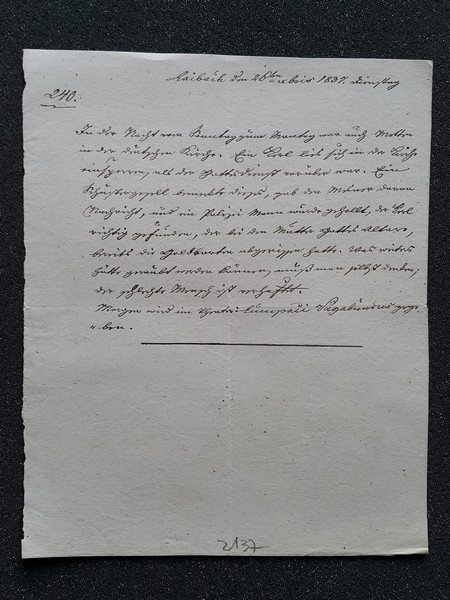 Laibach den 26ten xbris 1837. Dienstag
240.
In der Nacht von Sonntag zum Montag war auch Metten
in der deutschen Kirche. Ein Kerl ließ sich in der Kirche
einsperren, als der Gottesdienst vorüber war. Ein
Schustergesell bemerkte dieses, gab dem Meßner davon
Nachricht, und ein Polizei Mann wurde gehohlt, der Kerl
richtig gefunden, der bei dem Mutter Gottes Altare,
bereits die Goldborten abgerissen hatte. Was weiters
hätte geraubt werden können, muß man selbst denken,
der schlechte Mensch ist verhaftet.
Morgen wird im Theater Lumpaci Vagabundus gege-
"ben.
2137